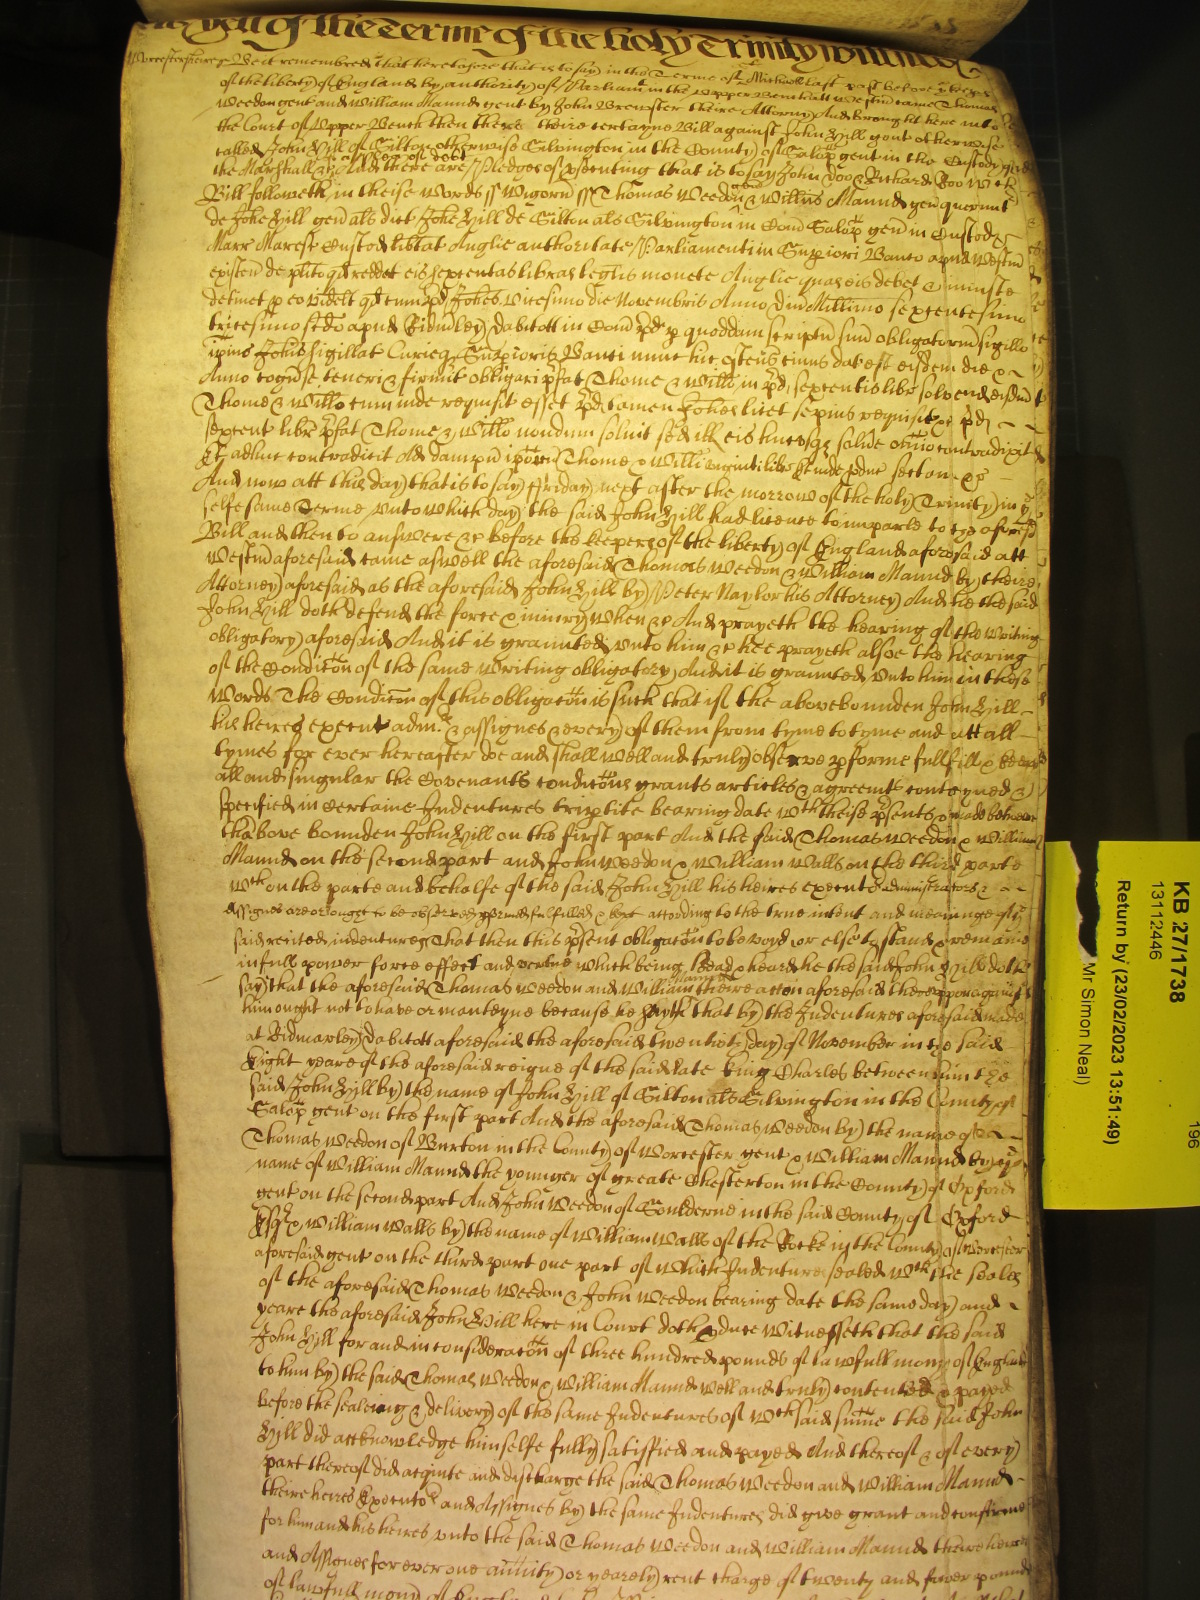 of the Terme of the holy Trinity
Worcestershire ss Be it remembred that heretofore that is to say in the Terme of St Michaell last past before
of the liberty of England by authority of Parliamt in the Upper Bench att Westm came Thomas
Weedon gent and William Maund gent by John Brewster theire Attorny And brought here into
the Court of Upper Bench then there theire certayne Bill against John Hill gent otherwise
called John Hill of Silton otherwise Silvington in the County of Salop gent in the Custody of
the Marshall &c in a plea of debt And there are Pledges of prsecuting that is to say John Doo & Richard Roo wch
Bill followeth in theise words ss Wigorn ss Thomas Weedon gen & Willus Maund gen querunt
de Johe Hill gen als dict Johe Hill de Silton als Silvington in Com Salop gen in Custod
Marr Maresc Custod libtat Anglie authoritate Parliamenti in Supiori Banco apud Westm
existen de plito qd reddat eis septentas libras legis monete Anglie quas eis debet & iniuste
detinet p eo videlt qd cum pd Johes vicesimo die Novembris Anno dm Millimo sexcentesimo
tricesimo scdo apud Ridmley Dabitott in Com pd p quoddam scriptu suu obligatorm sigillo
ipius Johis sigillat Curieq Supioris Banci nunc hic ostens cuius dat est eisdem die &
Anno cogn se teneri & firmit obligari pfat Thome & Willo in pd septentis libr solvend eisdm
Thome & Willo cum inde requisit esset pd tamen Johes licet sepius requisit &c pd
septent libr pfat Thome & Willo nondum solvit sed ill eis hucusq solve omnio contradixit &
Et adhuc contradicit Ad dampn ipor Thome & Willi viginti libr Et inde pduc sectam &c
And now att this day that is to say ffriday next after the morrow of the holy Trinity in ye
selfe same Terme unto which day the said John Hill had licence to imparle to the aforesd
Bill and then to answere &c before the keepers of the liberty of England aforesaid att
Westm aforesaid came aswell the aforesaid Thomas Weedon & William Maund by theire
Attorney aforesaid as the aforesaid John Hill by Peter Naylor his Attorney And he the said
John Hill doth defend the force & iniury when &c And prayeth the hearing of the writing
obligatory aforesaid And it is graunted unto him &c hee prayeth alsoe the hearing
of the Condicon of the same writing obligatory And it is graunted unto him in these
words The Condicon of this obligacon is such that if the abovebounden John Hill
his heires execut adm & assignes & every of them from tyme to tyme and att all
tymes for ever hereafter doe and shall well and truly observe pforme fullfill & keepe
all and singular the Covenants condicons grants articles & agreemts conteyned &
specified in certaine Indentures triptite bearing date wth theise psents & made betweene
thabove bounden John Hill on the first part And the said Thomas Weedon & William
Maund on the second part and John Weedon & William Walls on the third parte
wch on the parte and behalfe of the said John Hill his heires executo administrators &
Assignes are or ought to be observed pformed fulfilled & kept according to the true intent and meaninge of ye
said recited indentures That then this psent obligacon to be voyd or else to stand & remaine
in full power force effect and vertue which being Read & heard he the said John Hill doth
say that the aforesaid Thomas Weedon and William Maund theire accon aforesaid thereuppon against
him ought not to have or manteyne because he sayth that by the Indentures aforesaid made
at Ridmarley Dabitott aforesaid the aforesaid twentieth day of November in the said
Eight yeare of the aforesaid reigne of the said late king Charles betweene him the
said John Hill by the name of John Hill of Silton als Silvington in the County of
Salop gent on the first part And the aforesaid Thomas Weedon by the name of
Thomas Weedon of Burton in the County of Worcester gent & William Maund by ye
name of William Maund the younger of greate Chesterton in the County of Oxford
gent on the second part And John Weedon of Soulderne in the said County of Oxford
Esqr & William Walls by the name of William Walls of the Rocke in the County of Worcester
aforesaid gent on the third part one part of which Indenture sealed wth the seales
of the aforesaid Thomas Weedon & John Weedon bearing date the same day and
yeare the aforesaid John Hill here in Court doth pduce Witnesseth that the said
John Hill for and in consideracon of three hundred pounds of lawfull mony of England
to him by the said Thomas Weedon & William Maund well and truly contented & payed
before the sealeing & delivery of the same Indentures of wch said sume the said John
Hill did acknowledge himselfe fully satisfied and payed And thereof & of every
part thereof did acquite and discharge the said Thomas Weedon and William Maund
theire heires Executo and Assignes by the same Indentures did give grant and confirme
for him and his heires unto the said Thomas Weedon and William Maund theire heires
and Assignes for ever one anuity or yearely rent charge of twenty and fower pounds
of lawfull mony of England
KB 27/1738
13112446
Return by (23/02/2023 13:51:49)
Mr Simon Neal)
196